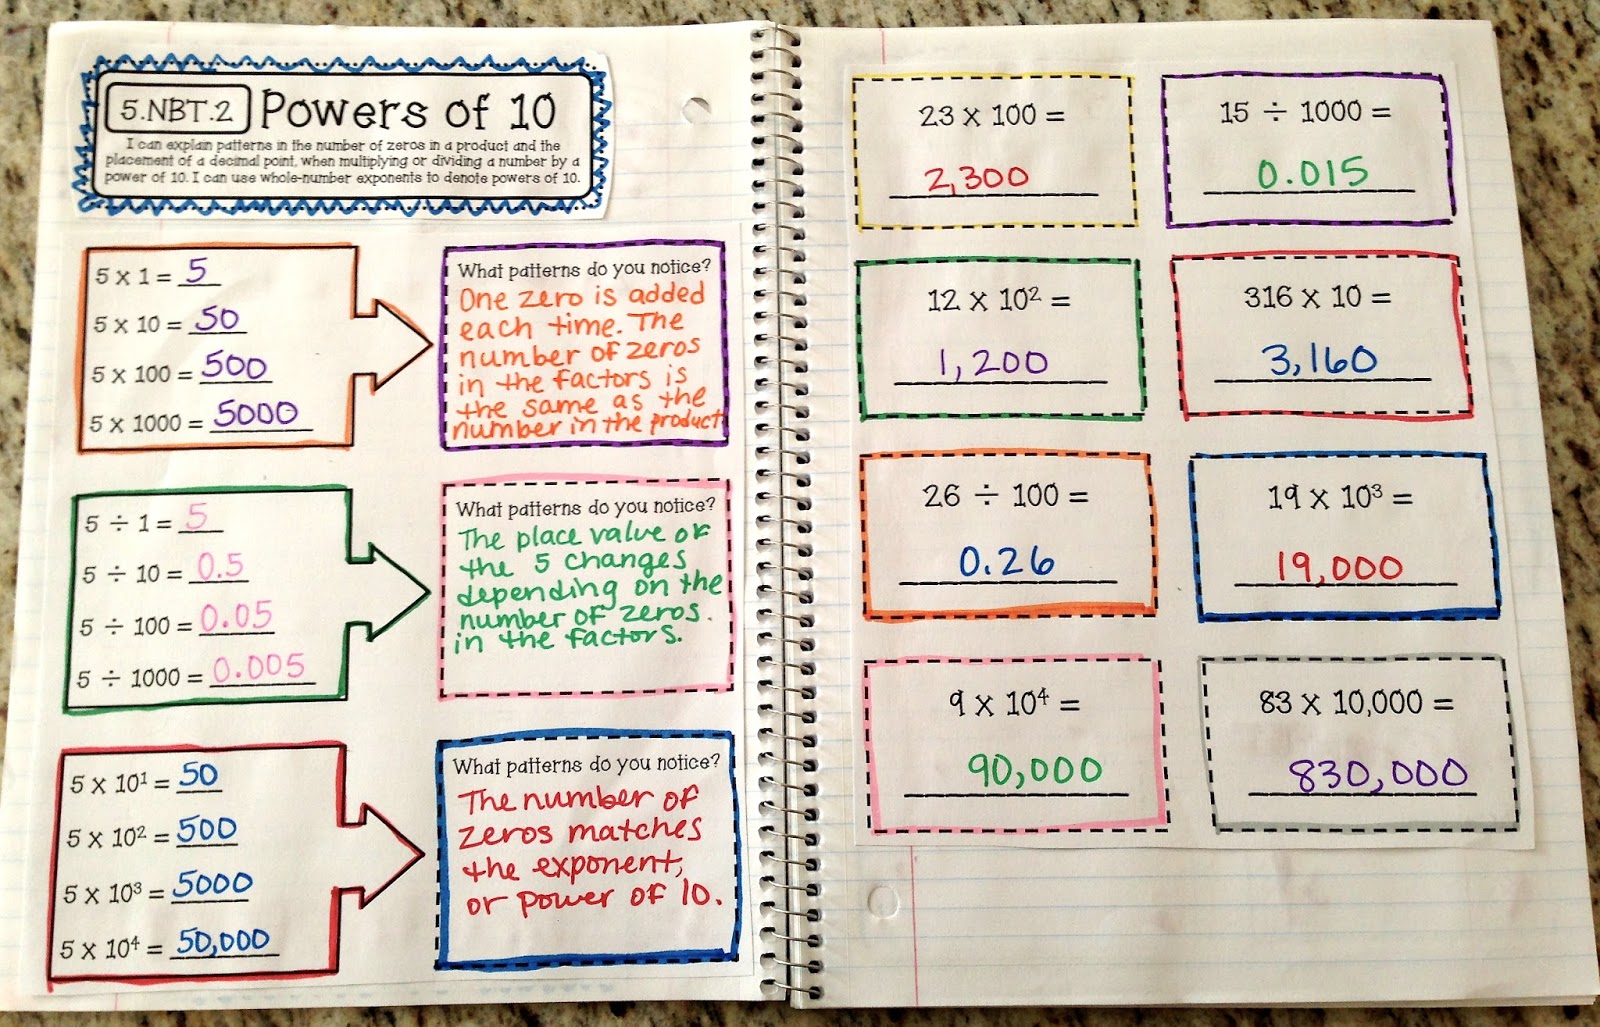 5.NBT.2 Powers of 10
I can explain patterns in the number of zeros in a product and the
placement of a decimal point, when multiplying or dividing a number by a
power of 10. I can use whole-number exponents to denote powers of 10.
5 x 1 = 5
5 x 10 = 50
5 x 100 = 500
5 x 1000 = 5000
What patterns do you notice?
One zero is added
each time. The
number of zeros
in the factors is
the same as the
number in the product
5 ÷ 1 = 5
5 ÷ 10 = 0.5
5 ÷ 100 = 0.05
5 ÷ 1000 = 0.005
What patterns do you notice?
The place value of
the 5 changes
depending on the
number of zeros.
in the factors.
5 x 10¹ = 50
5 x 10² = 500
5 x 10³ = 5000
5 x 10⁴ = 50,000
What patterns do you notice?
The number of
zeros matches
the exponent,
or power of 10.
23 x 100 =
2,300
15 ÷ 1000 =
0.015
12 x 10² =
1,200
316 x 10 =
3,160
26 ÷ 100 =
0.26
19 x 10³ =
19,000
9 x 10⁴ =
90,000
83 x 10,000 =
830,000